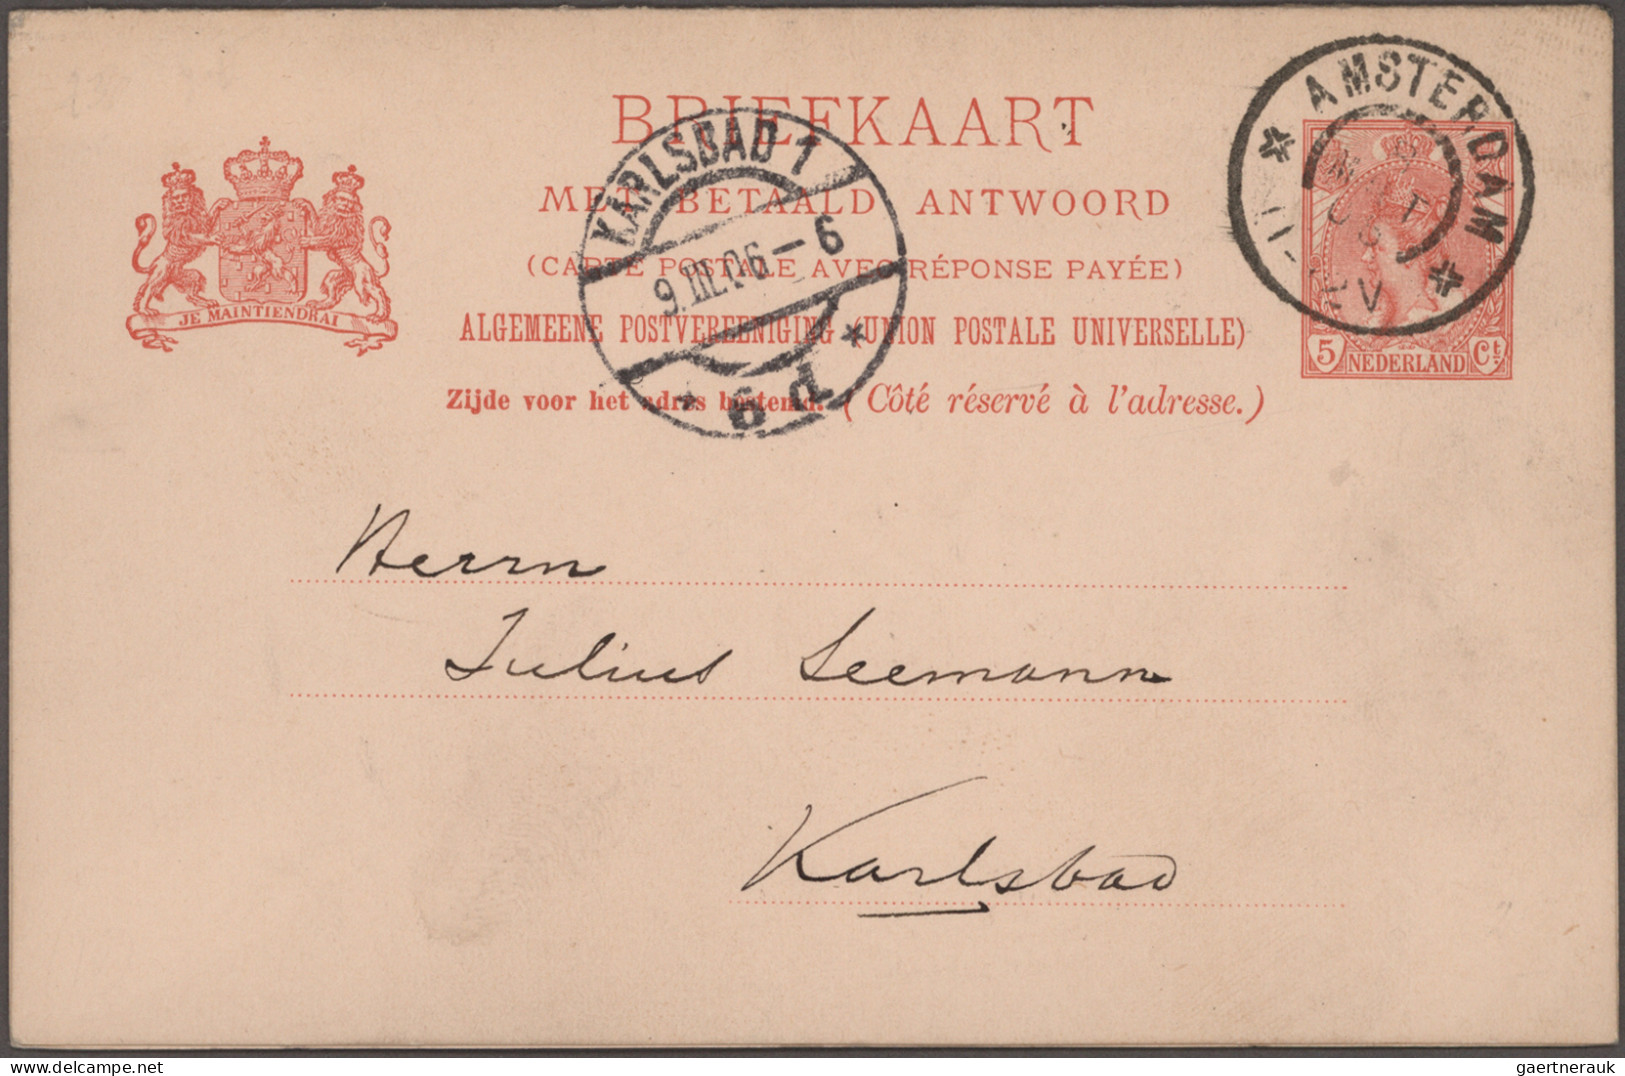 BRIEFKAART
MET BETAALD ANTWOORD
(CARTE POSTALE AVEC RÉPONSE PAYÉE)
ALGEMEENE POSTVEREENIGING (UNION POSTALE UNIVERSELLE)
Zijde voor het adres bestemd. (Côté réservé à l'adresse.)
JE MAINTIENDRAI
KARLSBAD 1
9.III.06-6
* 6d *
* AMSTERDAM *
5 NEDERLAND Ct.
Herrn
Julius Seemann
Karlsbad
delcampe.net
gaertnerauk